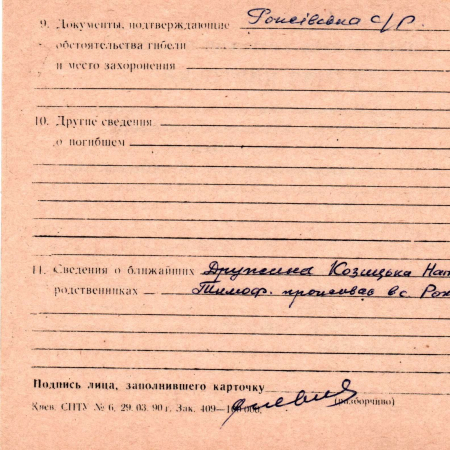 9. Документы, подтверждающие
обстоятельства гибели
и место захоронения
10. Другие сведения
о погибшем
11. Сведения о ближайших Дружина Козицька Нат
родственниках Тимоф. проживає в с. Рох
Подпись лица, заполнившего карточку
(разборчиво)
Киев. СПТУ № 6, 29. 03. 90 г. Зак. 409—100 000.